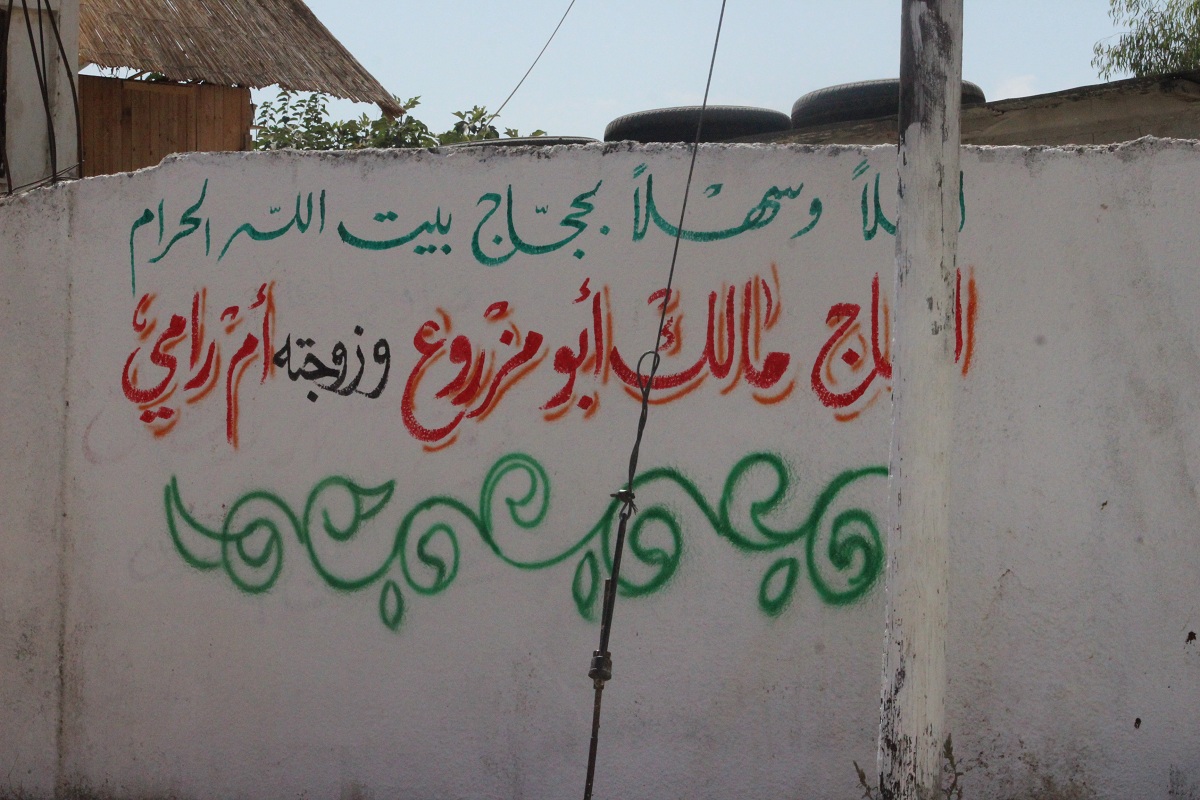 أهلاً وسهلاً بحجاج بيت اللّه الحرام
الحاج مالك أبو مزروع وزوجته أم رامي